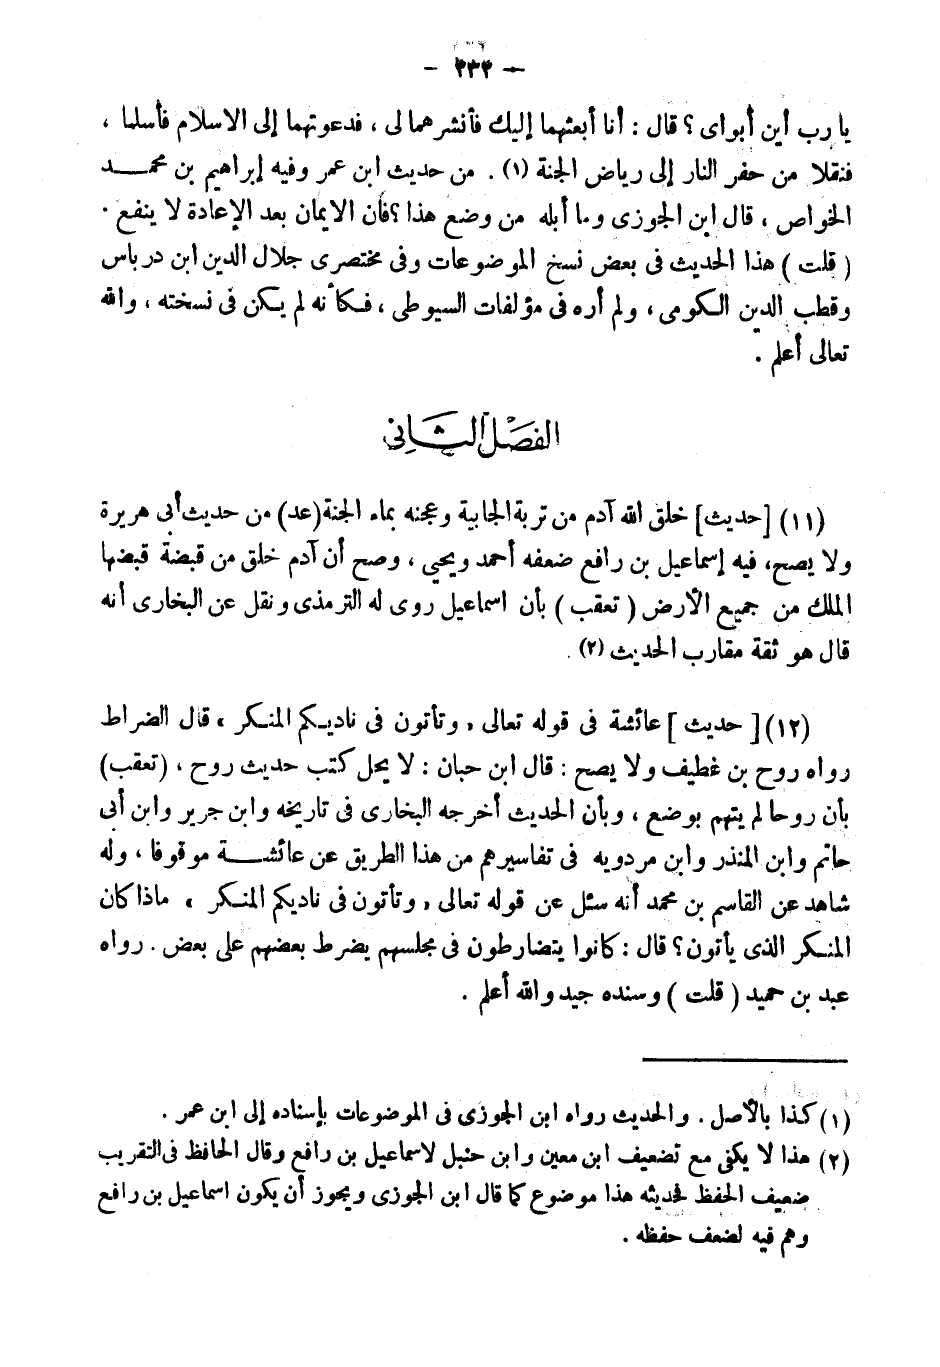 — ٢٣٢ —
يا رب أين أبواى ؟ قال : أنا أبعثهما إليك فأنشرهما لى ، فدعوتهما إلى الاسلام فأسلما ،
فنقلا من حفر النار إلى رياض الجنة (١) . من حديث ابن عمر وفيه إبراهيم بن محمد
الخواص ، قال ابن الجوزى وما أبله من وضع هذا ؟ فأن الايمان بعد الإعادة لا ينفع .
( قلت ) هذا الحديث فى بعض نسخ الموضوعات وفى مختصرى جلال الدين ابن درباس
وقطب الدين الكومى ، ولم أره فى مؤلفات السيوطى ، فكأنه لم يكن فى نسخته ، والله
تعالى أعلم .
الفصل الثانى
(١١) [حديث] خلق الله آدم من تربة الجابية وعجنه بماء الجنة (عد) من حديث أبى هريرة
ولا يصح، فيه إسماعيل بن رافع ضعفه أحمد ويحيى ، وصح أن آدم خلق من قبضة قبضها
الملك من جميع الأرض ( تعقب ) بأن اسماعيل روى له الترمذى ونقل عن البخارى أنه
قال هو ثقة مقارب الحديث (٢) .
(١٢) [ حديث ] عائشة فى قوله تعالى « وتأتون فى ناديكم المنكر » قال الضراط
رواه روح بن غطيف ولا يصح : قال ابن حبان : لا يحل كتب حديث روح ، (تعقب)
بأن روحا لم يتهم بوضع ، وبأن الحديث أخرجه البخارى فى تاريخه وابن جرير وابن أبى
حاتم وابن المنذر وابن مردويه فى تفاسيرهم من هذا الطريق عن عائشة موقوفا ، وله
شاهد عن القاسم بن محمد أنه سئل عن قوله تعالى « وتأتون فى ناديكم المنكر » ماذا كان
المنكر الذى يأتون ؟ قال : كانوا يتضارطون فى مجلسهم يضرط بعضهم على بعض . رواه
عبد بن حميد ( قلت ) وسنده جيد والله أعلم .
(١) كذا بالأصل . والحديث رواه ابن الجوزى فى الموضوعات بإسناده إلى ابن عمر .
(٢) هذا لا يكفى مع تضعيف ابن معين وابن حنبل لاسماعيل بن رافع وقال الحافظ فى التقريب
ضعيف الحفظ فحديثه هذا موضوع كما قال ابن الجوزى ويجوز أن يكون اسماعيل بن رافع
وهم فيه لضعف حفظه .